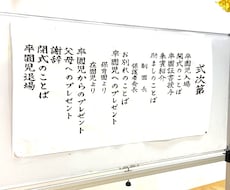 式次第
卒園児入場
開式のことば
卒園証書授与
来賓紹介
励ましのことば
制園長
保護者会長
お別れのことば
在園児より
保育園より
卒園児へのプレゼント
卒園児からのプレゼント
父母へのプレゼント
謝辞
閉式のことば
卒園児退場